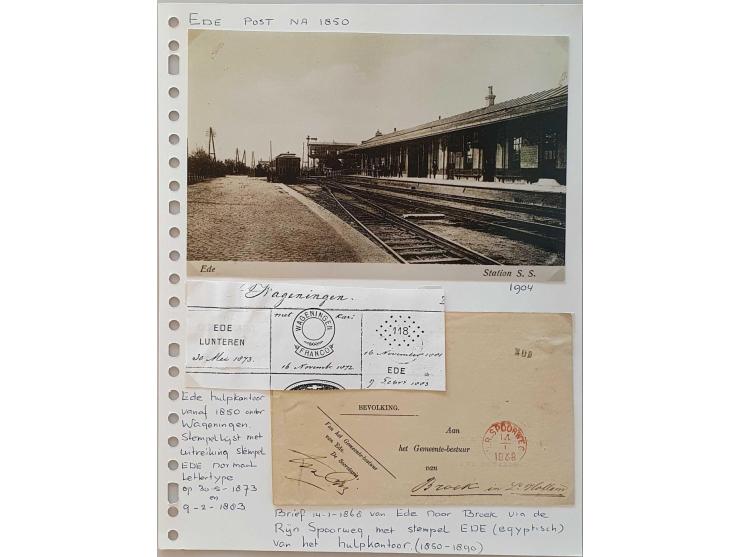 EDE POST NA 1850
Ede
Station S. S.
1904
Wageningen.
EDE
LUNTEREN
30 Mei 1873.
met
WAGENINGEN
FRANCO
16 Novemb 1872
Kar:
118
16 November 1881
EDE
9 Febri 1883
Ede hulpkantoor
vanaf 1850 onder
Wageningen.
Stempellijst met
uitreiking stempel
EDE normaal
Lettertype
op 30-5-1873
en
9-2-1883
EDE
BEVOLKING.
Van het Gemeente-bestuur
van Ede.
De Secretaris,
Aan
het Gemeente-bestuur
van
Broek in
R. SPOORWEG
14
1
1868
Brief 14-1-1868 van Ede naar Broek via de
Rijn Spoorweg met stempel EDE (egyptisch)
van het hulpkantoor. (1850-1890)